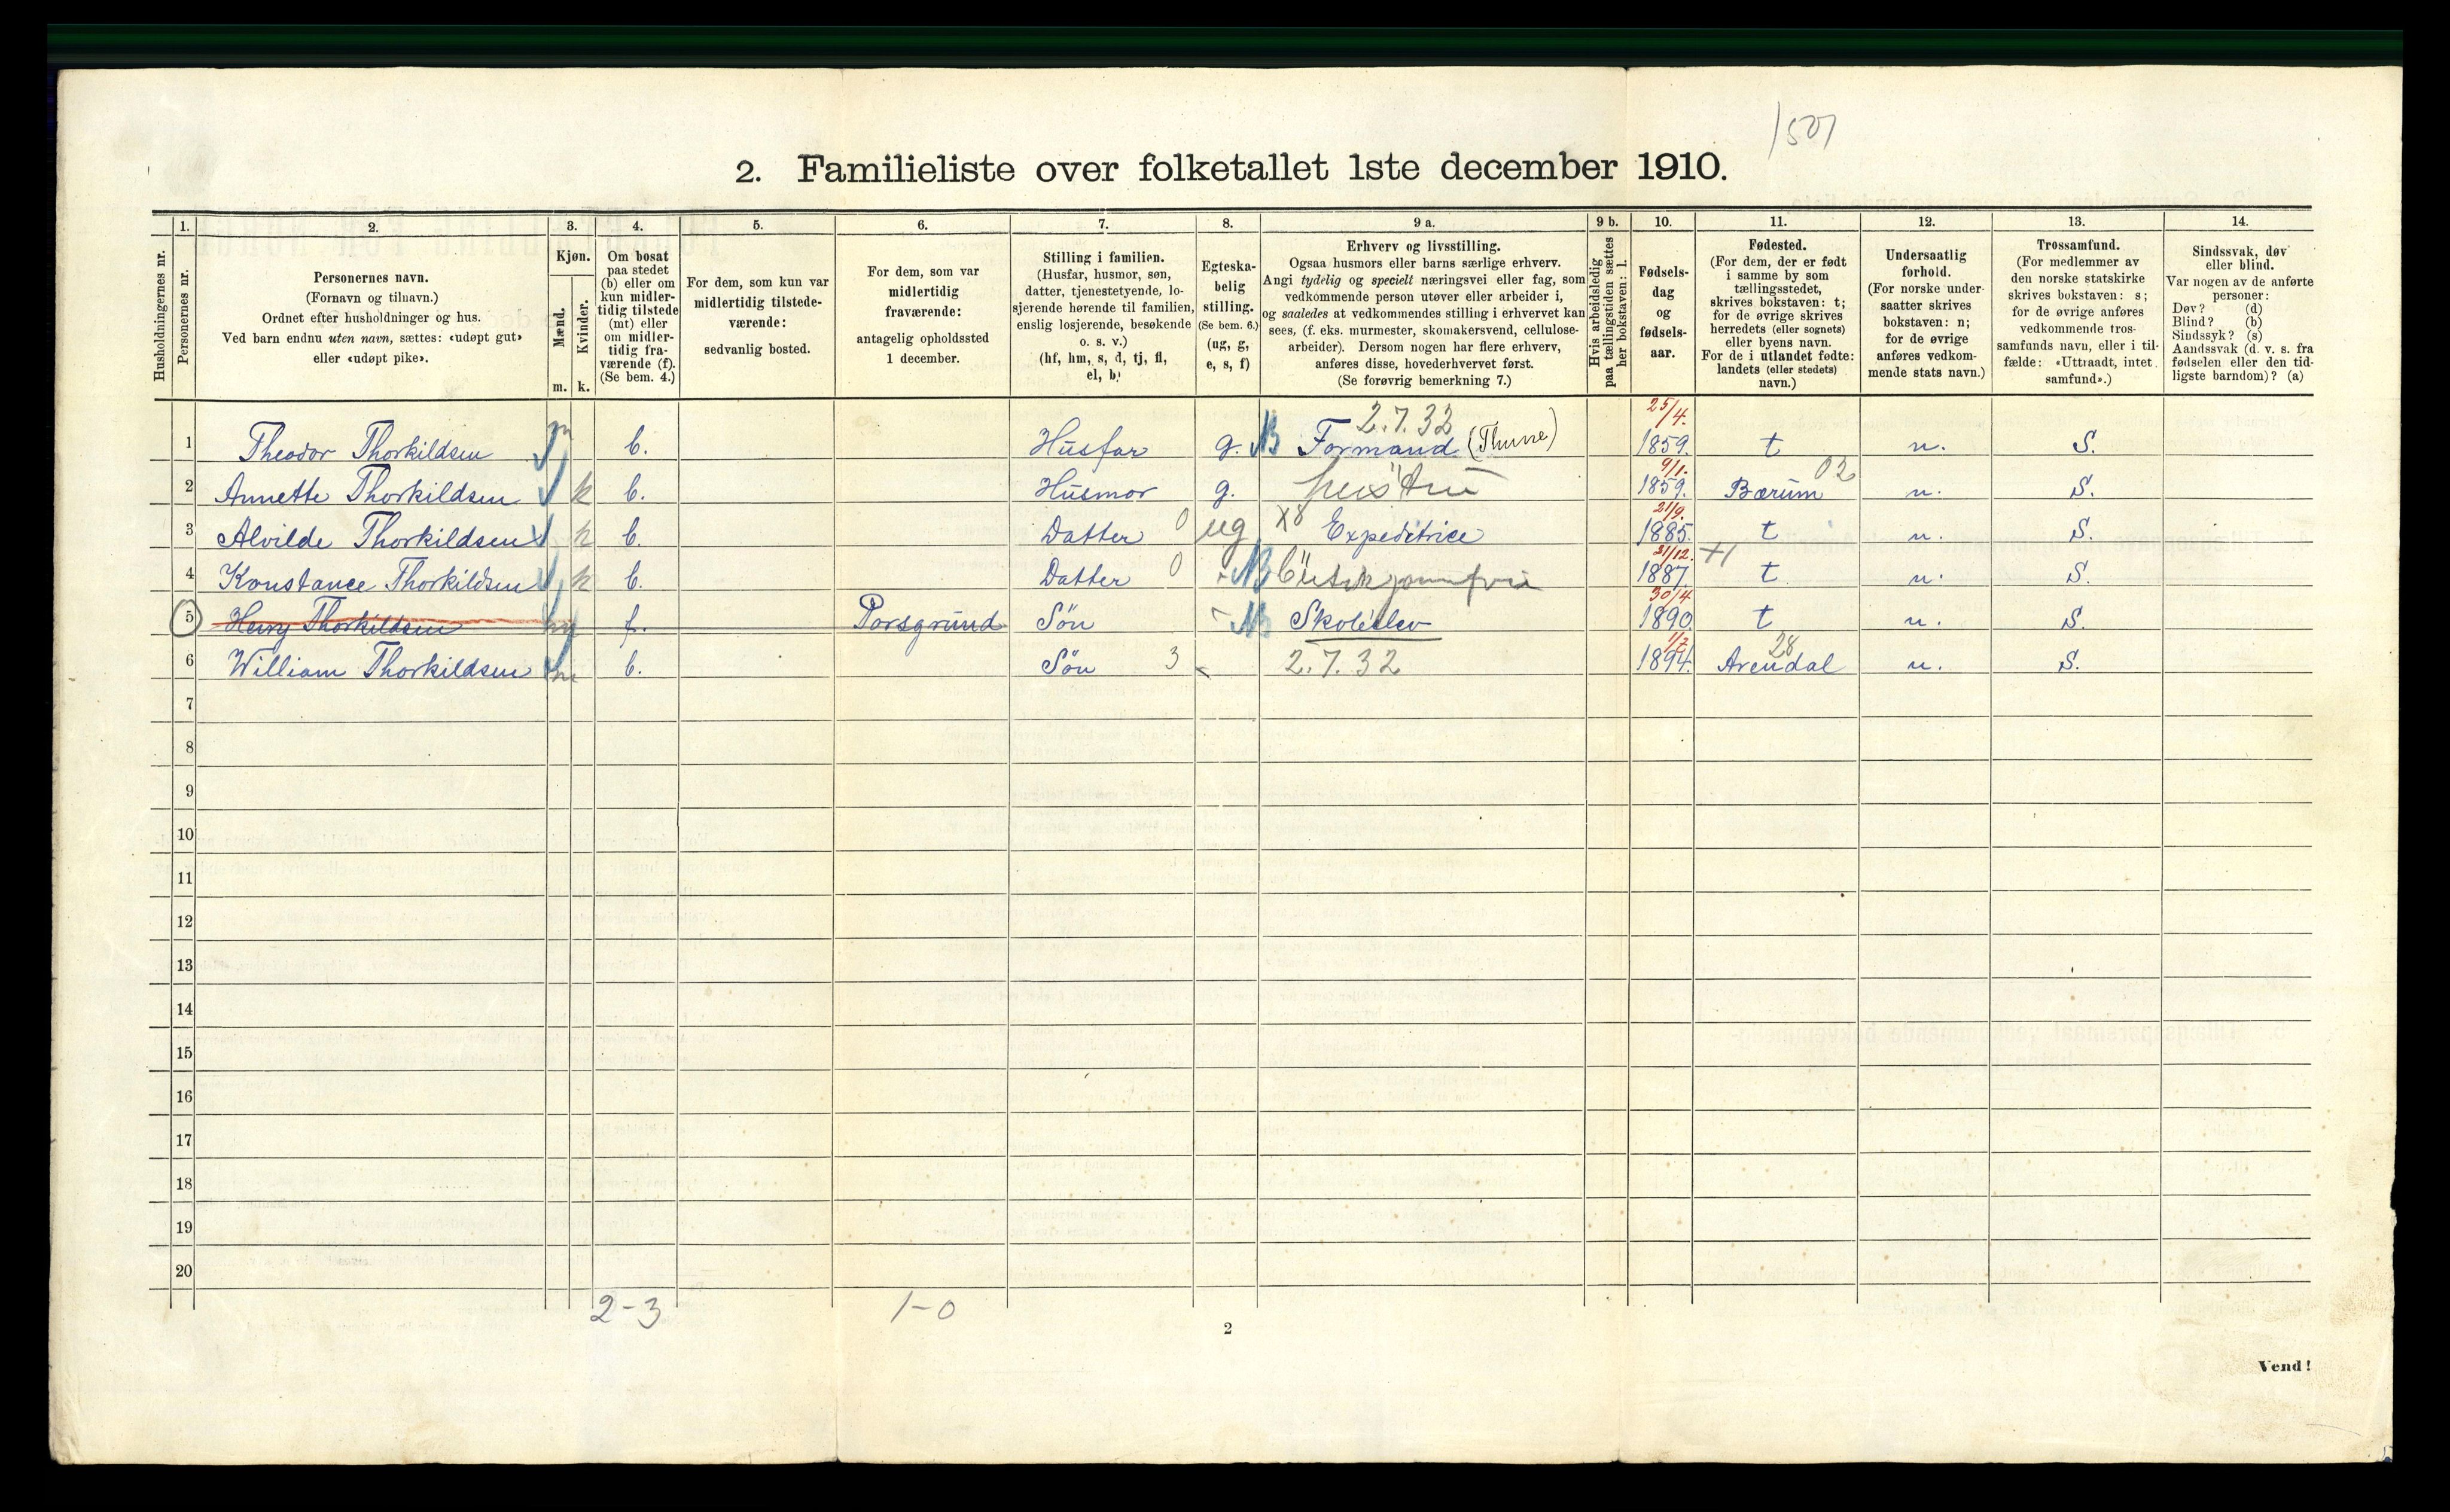 1501
2. Familieliste over folketallet 1ste december 1910.
1. 2. 3. 4. 5. 6. 7. 8. 9 a. 9 b. 10. 11. 12. 13. 14.
Husholdningernes nr.
Personernes nr.
Personernes navn.
(Fornavn og tilnavn.)
Ordnet efter husholdninger og hus.
Ved barn endnu uten navn, sættes: «udøpt gut»
eller «udøpt pike».
Kjøn.
Mænd.
Kvinder.
m. k.
Om bosat
paa stedet
(b) eller om
kun midler-
tidig tilstede
(mt) eller
om midler-
tidig fra-
værende (f).
(Se bem. 4.)
For dem, som kun var
midlertidig tilstede-
værende:
sedvanlig bosted.
For dem, som var
midlertidig
fraværende:
antagelig opholdssted
1 december.
Stilling i familien.
(Husfar, husmor, søn,
datter, tjenestetyende, lo-
sjerende hørende til familien,
enslig losjerende, besøkende
o. s. v.)
(hf, hm, s, d, tj, fl,
el, b)
Egteska-
belig
stilling.
(Se bem. 6.)
(ug, g,
e, s, f)
Erhverv og livsstilling.
Ogsaa husmors eller barns særlige erhverv.
Angi tydelig og specielt næringsvei eller fag, som
vedkommende person utøver eller arbeider i,
og saaledes at vedkommendes stilling i erhvervet kan
sees, (f. eks. murmester, skomakersvend, cellulose-
arbeider). Dersom nogen har flere erhverv,
anføres disse, hovederhvervet først.
(Se forøvrig bemerkning 7.)
Hvis arbeidsledig
paa tællingstiden sættes
her bokstaven: l.
Fødsels-
dag
og
fødsels-
aar.
Fødested.
(For dem, der er født
i samme by som
tællingsstedet,
skrives bokstaven: t;
for de øvrige skrives
herredets (eller sognets)
eller byens navn.
For de i utlandet fødte:
landets (eller stedets)
navn.)
Undersaatlig
forhold.
(For norske under-
saatter skrives
bokstaven: n;
for de øvrige
anføres vedkom-
mende stats navn.)
Trossamfund.
(For medlemmer av
den norske statskirke
skrives bokstaven: s;
for de øvrige anføres
vedkommende tros-
samfunds navn, eller i til-
fælde: «Uttraadt, intet
samfund».)
Sindssvak, døv
eller blind.
Var nogen av de anførte
personer:
Døv? (d)
Blind? (b)
Sindssyk? (s)
Aandssvak (d. v. s. fra
fødselen eller den tid-
ligste barndom)? (a)
2.7.32 25/4.
1 Theodor Thorkildsen m b. Husfar g. Formand (Thune) 1859. t n. S.
9/1. 02
2 Annette Thorkildsen k b. Husmor g. 1859. Bærum n. S.
21/9.
3 Alvilde Thorkildsen k b. Datter 0 ug X8 Expeditrice 1885. t n. S.
31/12.
4 Konstance Thorkildsen k b. Datter 0 1887. t n. S.
30/4
5 Henry Thorkildsen m f. Porsgrund Søn Skoleelev 1890. t n. S.
1/2 28
6 William Thorkildsen m b. Søn 3 2.7.32 1894. Arendal n. S.
7
8
9
10
11
12
13
14
15
16
17
18
19
20
2-3 1-0
2
Vend!